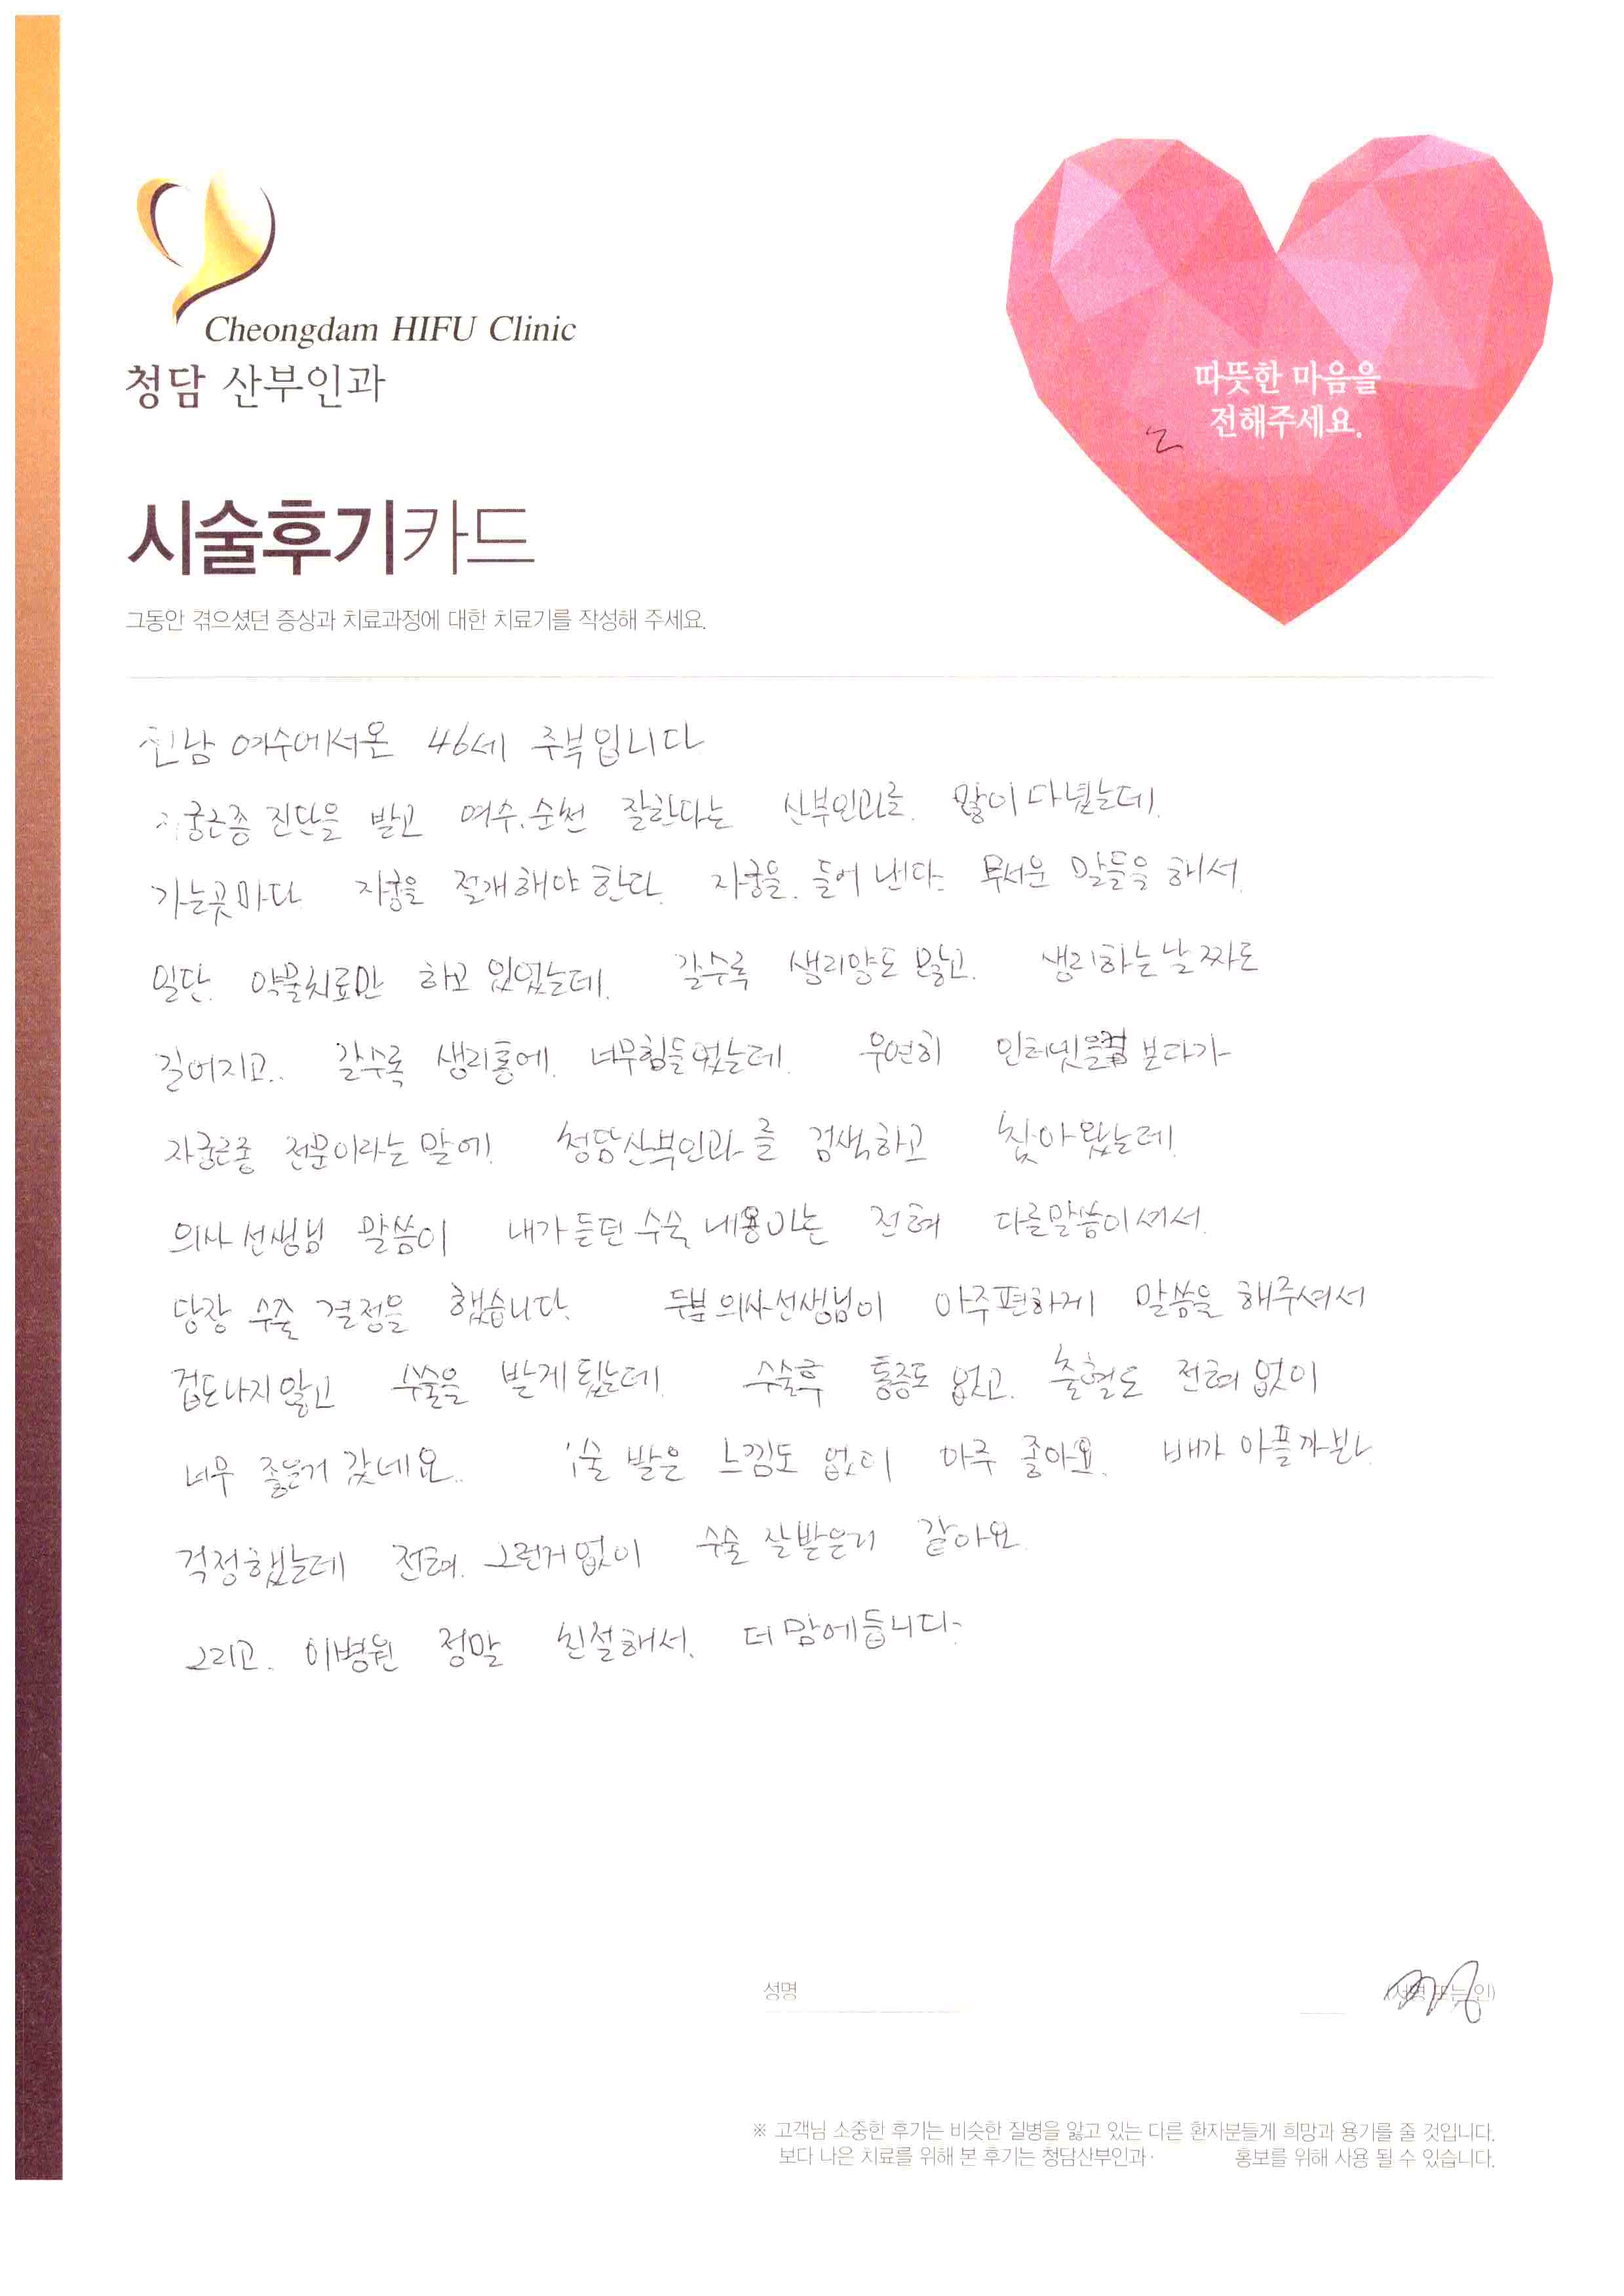 Cheongdam HIFU Clinic
청담 산부인과
따뜻한 마음을
전해주세요.
시술후기카드
그동안 겪으셨던 증상과 치료과정에 대한 치료기를 작성해 주세요.
여수에서온 46세 주부입니다
자궁근종 진단을 받고 여수.순천 잘한다는 산부인과로. 많이 다녔는데.
가는곳마다 자궁을 절개해야 한다. 자궁을. 들어 낸다. 무서운 말들을 해서.
일단. 약물치료만 하고 있었는데. 갈수록 생리양도 많고. 생리하는날짜도
길어지고.. 갈수록 생리통에. 너무힘들었는데. 우연히 인터넷을 보다가
자궁근종 전문이라는 말에. 청담산부인과를 검색하고 찾아왔는데.
의사 선생님 말씀이 내가 듣던 수술 내용과는 전혀 다른말씀이셔서.
당장 수술 결정을 했습니다. 두분 의사선생님이 아주편하게 말씀을 해주셔서
겁도나지않고 수술을 받게됬는데. 수술후 통증도 없고. 출혈도 전혀 없이
너무 좋은거 같네요.. 수술 받은 느낌도 없이 아주 좋아요. 배가 아플까봐.
걱정했는데 전혀. 그런거없이 수술 잘받은거 같아요.
그리고. 이병원 정말 친절해서. 더 맘에듭니다~
성명
(서명 또는 인)
※ 고객님 소중한 후기는 비슷한 질병을 앓고 있는 다른 환자분들게 희망과 용기를 줄 것입니다.
보다 나은 치료를 위해 본 후기는 청담산부인과· 홍보를 위해 사용 될 수 있습니다.